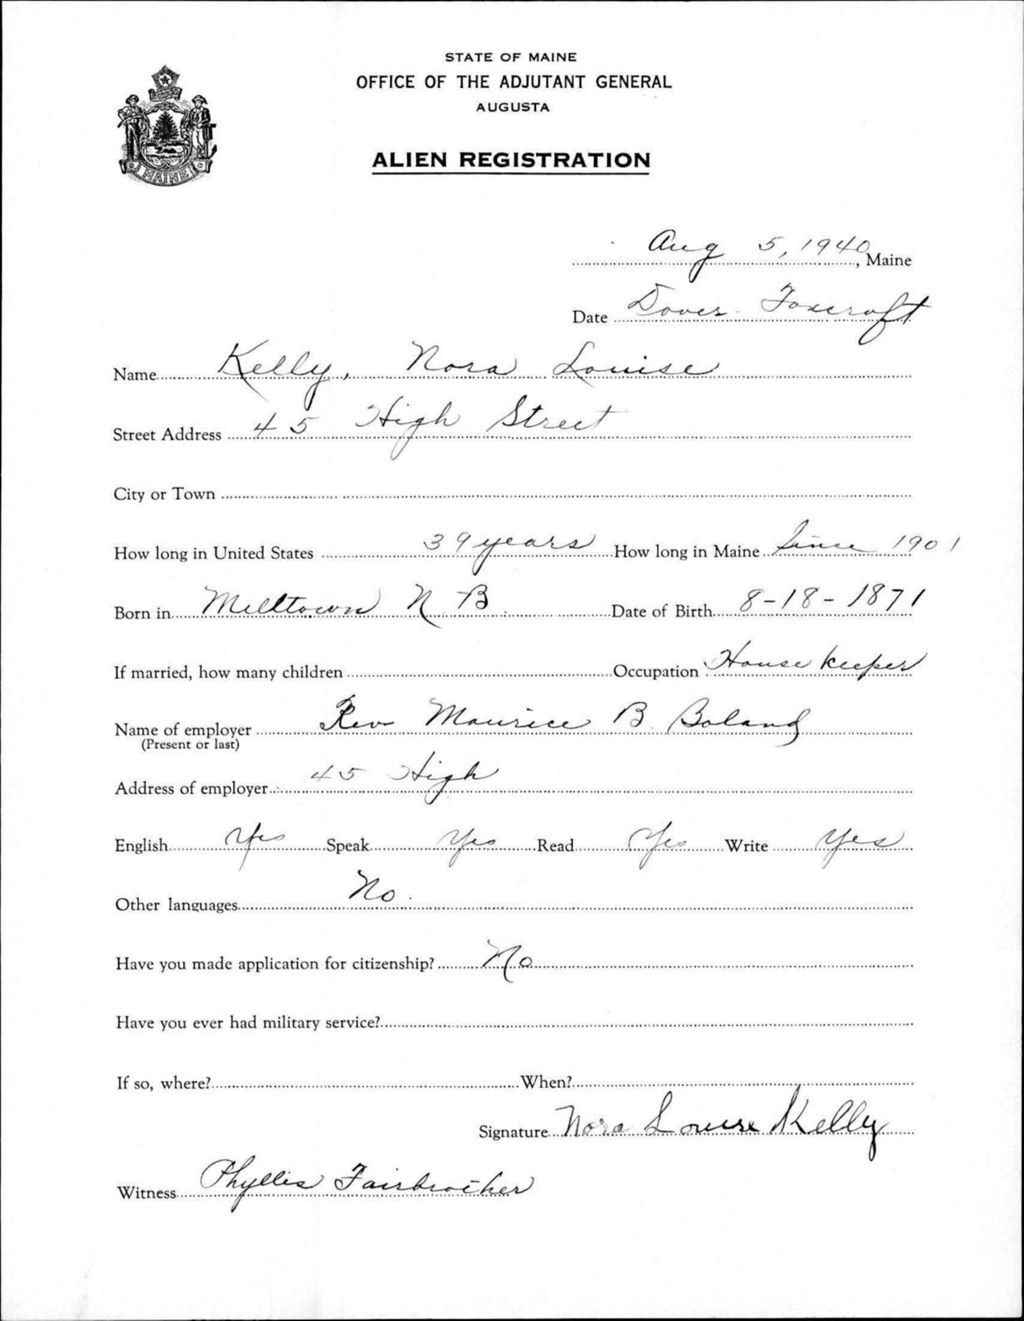 STATE OF MAINE
OFFICE OF THE ADJUTANT GENERAL
AUGUSTA
ALIEN REGISTRATION
MAINE
Aug 5, 1940, Maine
Date Dover-Foxcroft
Name Kelly, Nora Louise
Street Address 45 High Street
City or Town
How long in United States 39 years How long in Maine Since 1901
Born in Milltown N B. Date of Birth 8-18-1871
If married, how many children Occupation House keeper
Name of employer Rev Maurice B. Boland
(Present or last)
Address of employer 45 High
English Yes Speak Yes Read Yes Write Yes
Other languages No.
Have you made application for citizenship? No
Have you ever had military service?
If so, where? When?
Signature Nora Louise Kelly
Witness Phyllis Fairbrother